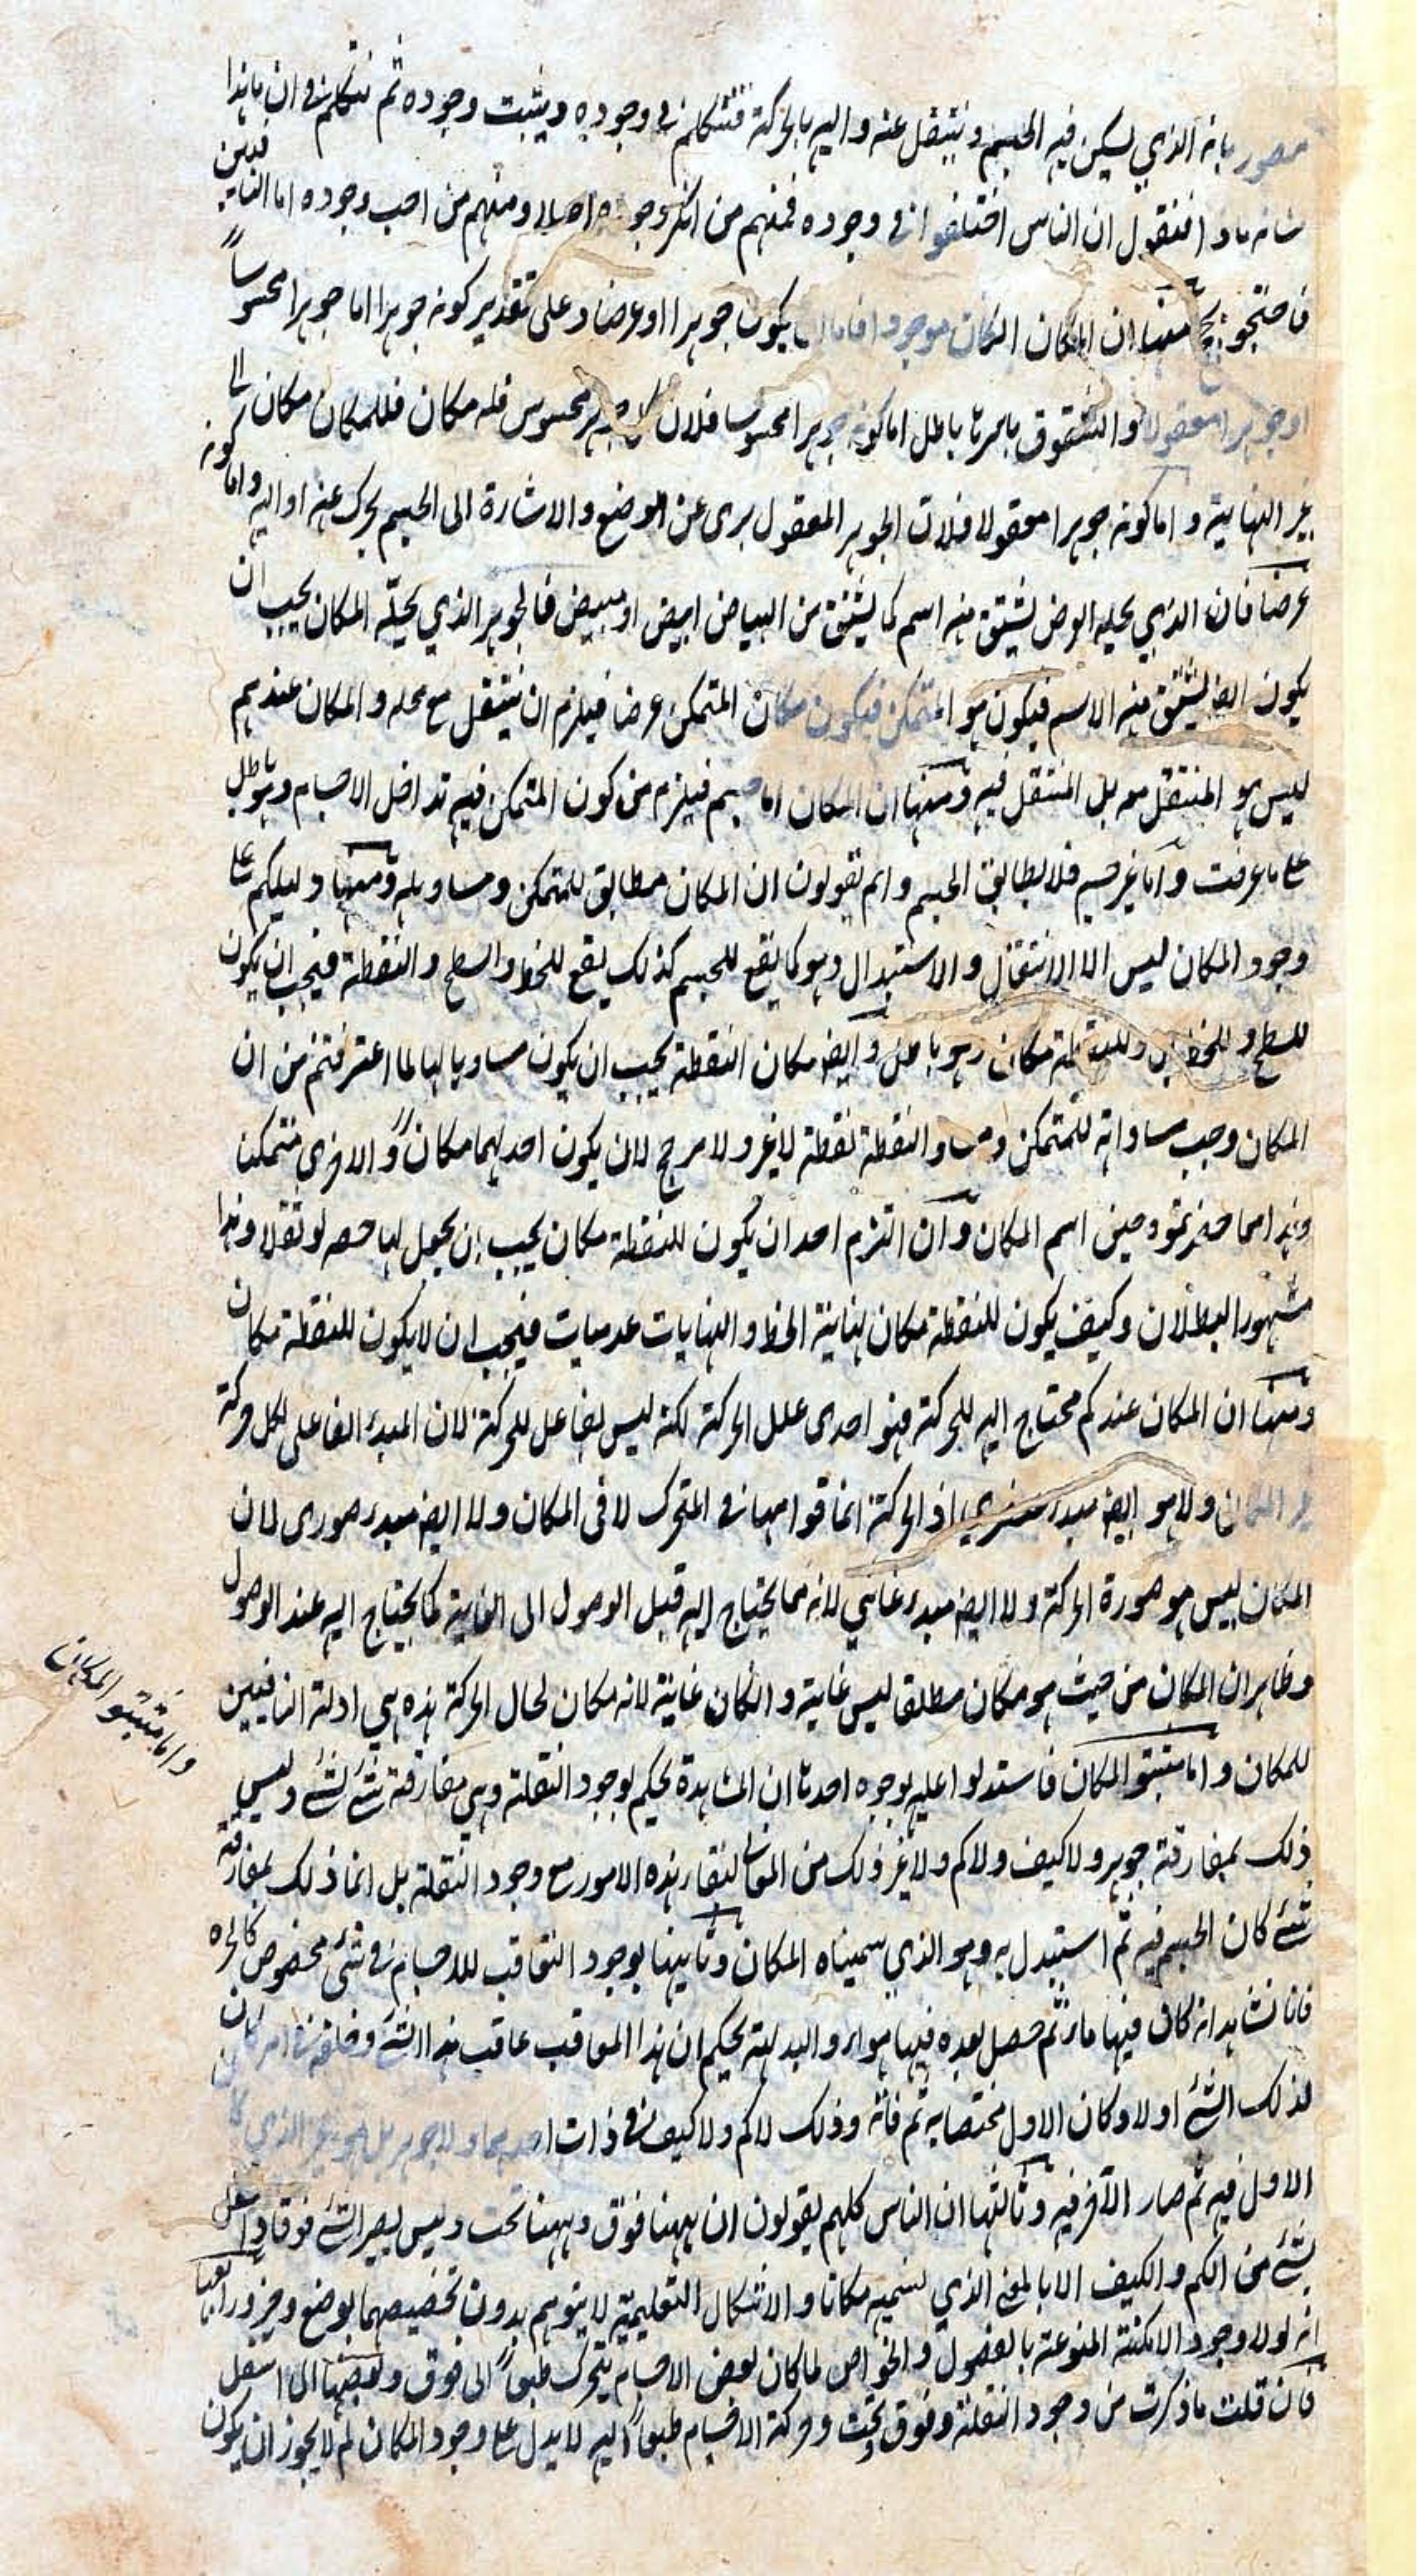 متصور بانه الذي يسكن فيه الجسم وينتقل عنه واليه بالحركة فنتكلم في وجوده ويثبت وجوده ثم نتكلم في ان ماهذا
شانه ماذا فنقول ان الناس اختلفوا في وجوده فمنهم من انكر وجوده اصلا ومنهم من اوجب وجوده اما النافين
فاحتجوا بحجج منها ان المكان انكان موجودا فاما ان يكون جوهرا او عرضا وعلى تقدير كونه جوهرا اما جوهرا محسوساً
او جوهرا معقولا والشقوق باسرها باطل اما كونه جوهرا محسوسا فلان كل جوهر محسوس فله مكان فللمكان مكان الى
غير النهاية و اما كونه جوهرا معقولا فلان الجوهر المعقول برى عن الوضع والاشارة الى الجسم يحرك عنه او اليه واما كونه
عرضا فان الذي يحله العرض يشتق منه اسم كما يشتق من البياض ابيض او مبيض فالجوهر الذي يحله المكان يجب ان
يكون ايض يشتق منه الاسم فيكون هو المتمكن فيكون مكان المتمكن عرضا فيلزم ان ينتقل مع محله و المكان عندهم
ليس هو المنتقل معه بل المنتقل فيه ومنها ان المكان اما جسم فيلزم من كون المتمكن فيه تداخل الاجسام وهو باطل
على ما عرفت و اما غير جسم فلا يطابق الجسم و انتم تقولون ان المكان مطابق للمتمكن ومساو له ومنها دليلكم على
وجود المكان ليس الا الانتقال و الاستبدال وهو كما يقع للجسم كذلك يقع للخط والسطح و النقطة فيجب ان يكون
للسطح و للخط وللنقطة مكان وهو باطل و ايض مكان النقطة يجب ان يكون مساويا لها لما اعترفتم من ان
المكان وجب مساواته للمتمكن ومساو النقطة نقطة لا غير ولا مرجح لان يكون احديهما مكاناً والاخرى متمكنا
وان التزم احد ان يكون للنقطة مكان يجب ان يجعل لها خفة او ثقلا وهذا
مشهور البطلان وكيف يكون للنقطة مكان نهاية الخط و النهايات عدميات فيجب ان لا يكون للنقطة مكان
ومنها ان المكان عندكم محتاج اليه للحركة فهو احدى علل الحركة لكنه ليس بفاعل للحركة لان المبدء الفاعلى لكل حركة
غير المكان ولا هو ايض مبدء عنصري اذ الحركة انما قوامها في المتحرك لا في المكان ولا ايض مبدء صورى لان
المكان ليس هو صورة الحركة ولا ايض مبدء غائي لانه مما يحتاج اليه قبل الوصول الى الغاية كما يحتاج اليه عند الوصول
وظاهر ان المكان من حيث هو مكان مطلقا ليس غاية و انكان غاية لانه مكان لحال الحركة هذه هي ادلة النافيين
للمكان و اما مثبتو المكان فاستدلوا عليه بوجوه احدها ان المشاهدة يحكم بوجود النقلة وهي مفارقة شئ لشئ وليس
ذلك بمفارقة جوهر ولا كيف ولا كم ولا غير ذلك من المعاني لبقاء هذه الامور مع وجود النقلة بل انما ذلك بمفارقة
شئ كان الجسم فيه ثم استبدل به وهو الذي سميناه المكان وثانيها بوجود التعاقب للاجسام في شئ مخصوص كالجرة
فانا نشاهد انه كان فيها ماء ثم حصل بعده فيها هواء والبديهة يحكم ان هذا المعاقب عاقب هذا الشئ وخلفه في امر كان
لذلك الشئ اولا وكان الاول مختصا به ثم فاته وذلك لا كم ولا كيف في ذات احدهما ولا جوهر بل الحيز الذي كان
الاول فيه ثم صار الآخر فيه وثالثها ان الناس كلهم يقولون ان ههنا فوق وههنا تحت وليس يصير الشئ فوقا واسفل
بشئ من الكم والكيف الا بالمعنى الذي نسميه مكانا والاشكال التعليمية لا يتوهم بدون تخصيصهما بوضع وحيز ورابعها
انه لولا وجود الامكنة المنوعة بالفصول والخواص لما كان بعض الاجسام يتحرك طبعاً الى فوق وبعضها الى اسفل
فان قلت ما ذكرت من وجود النقلة وفوق وتحت وحركة الاجسام طبعاً اليه لا يدل على وجود المكان لم لا يجوز ان يكون
واما مثبتو المكان